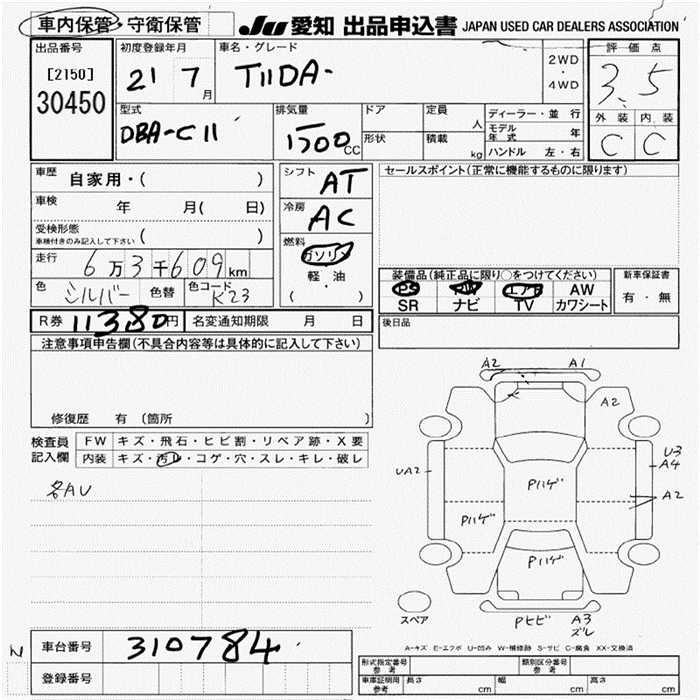 車内保管・守衛保管 JU 愛知 出品申込書 JAPAN USED CAR DEALERS ASSOCIATION
出品番号 初度登録年月 車名・グレード 2WD・4WD 評価点
[2150] 21 7月 TIIDA- 3.5
30450 型式 排気量 ドア 定員 人 ディーラー・並行 外装 内装
DBA-C11 1500CC 形状 積載 kg モデル年式 年 C C
ハンドル 左・右
車歴 自家用・( ) シフト AT セールスポイント(正常に機能するものに限ります)
車検 年 月( 日) 冷房 AC
受検形態 ( )
車検付きのみ記入して下さい
燃料 ガソリン
走行 6万3千609km 軽・油 装備品(純正品に限り○をつけてください) 新車保証書
( ) PS PW エアB AW 有・無
色 シルバー 色替 色コード K23 SR ナビ TV カワシート
R券 11380円 名変通知期限 月 日 後日品
注意事項申告欄(不具合内容等は具体的に記入して下さい)
修復歴 有(箇所
検査員記入欄 FW キズ・飛石・ヒビ割・リペア跡・X要
内装 キズ・汚レ・コゲ・穴・スレ・キレ・破レ
A2 A1
A2
U3
A4
UA2
A2
Pハゲ
Pハゲ
Pハゲ
スペア
Pヒビ A3
ズレ
A-キズ E-エクボ U-凹み W-補修跡 S-サビ C-腐食 XX-交換済
N 車台番号 310784
登録番号
形式指定番号 参考 類別区分番号 参考
車庫証明用 参考 長さ cm 幅 cm 高さ cm